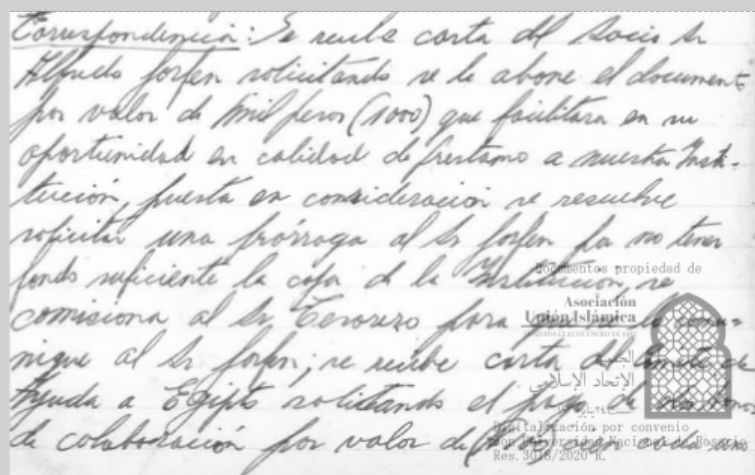 Correspondencia: Se recibe carta del Socio Sr
Alfredo Jorfen solicitando se le abone el document
por valor de Mil pesos (1000) que facilitara en su
oportunidad en calidad de prestamo a nuestra Insti-
tución, puesta en consideracion se resuelve
solicitar una prórroga al Sr Jorfen por no tener
fondo suficiente la caja de la Institucion, se
comisiona al Sr Tesorero para
nique al Sr Jorfen; se recibe carta del de
Ayuda a Egipto solicitando el pago de
de colaboración por valor de cada uno
Documentos propiedad de
Asociación
Unión Islámica
الإتحاد الإسلامي
Digitalización por convenio
con Universidad Nacional de Rosario
Res. 3018/2020 R.